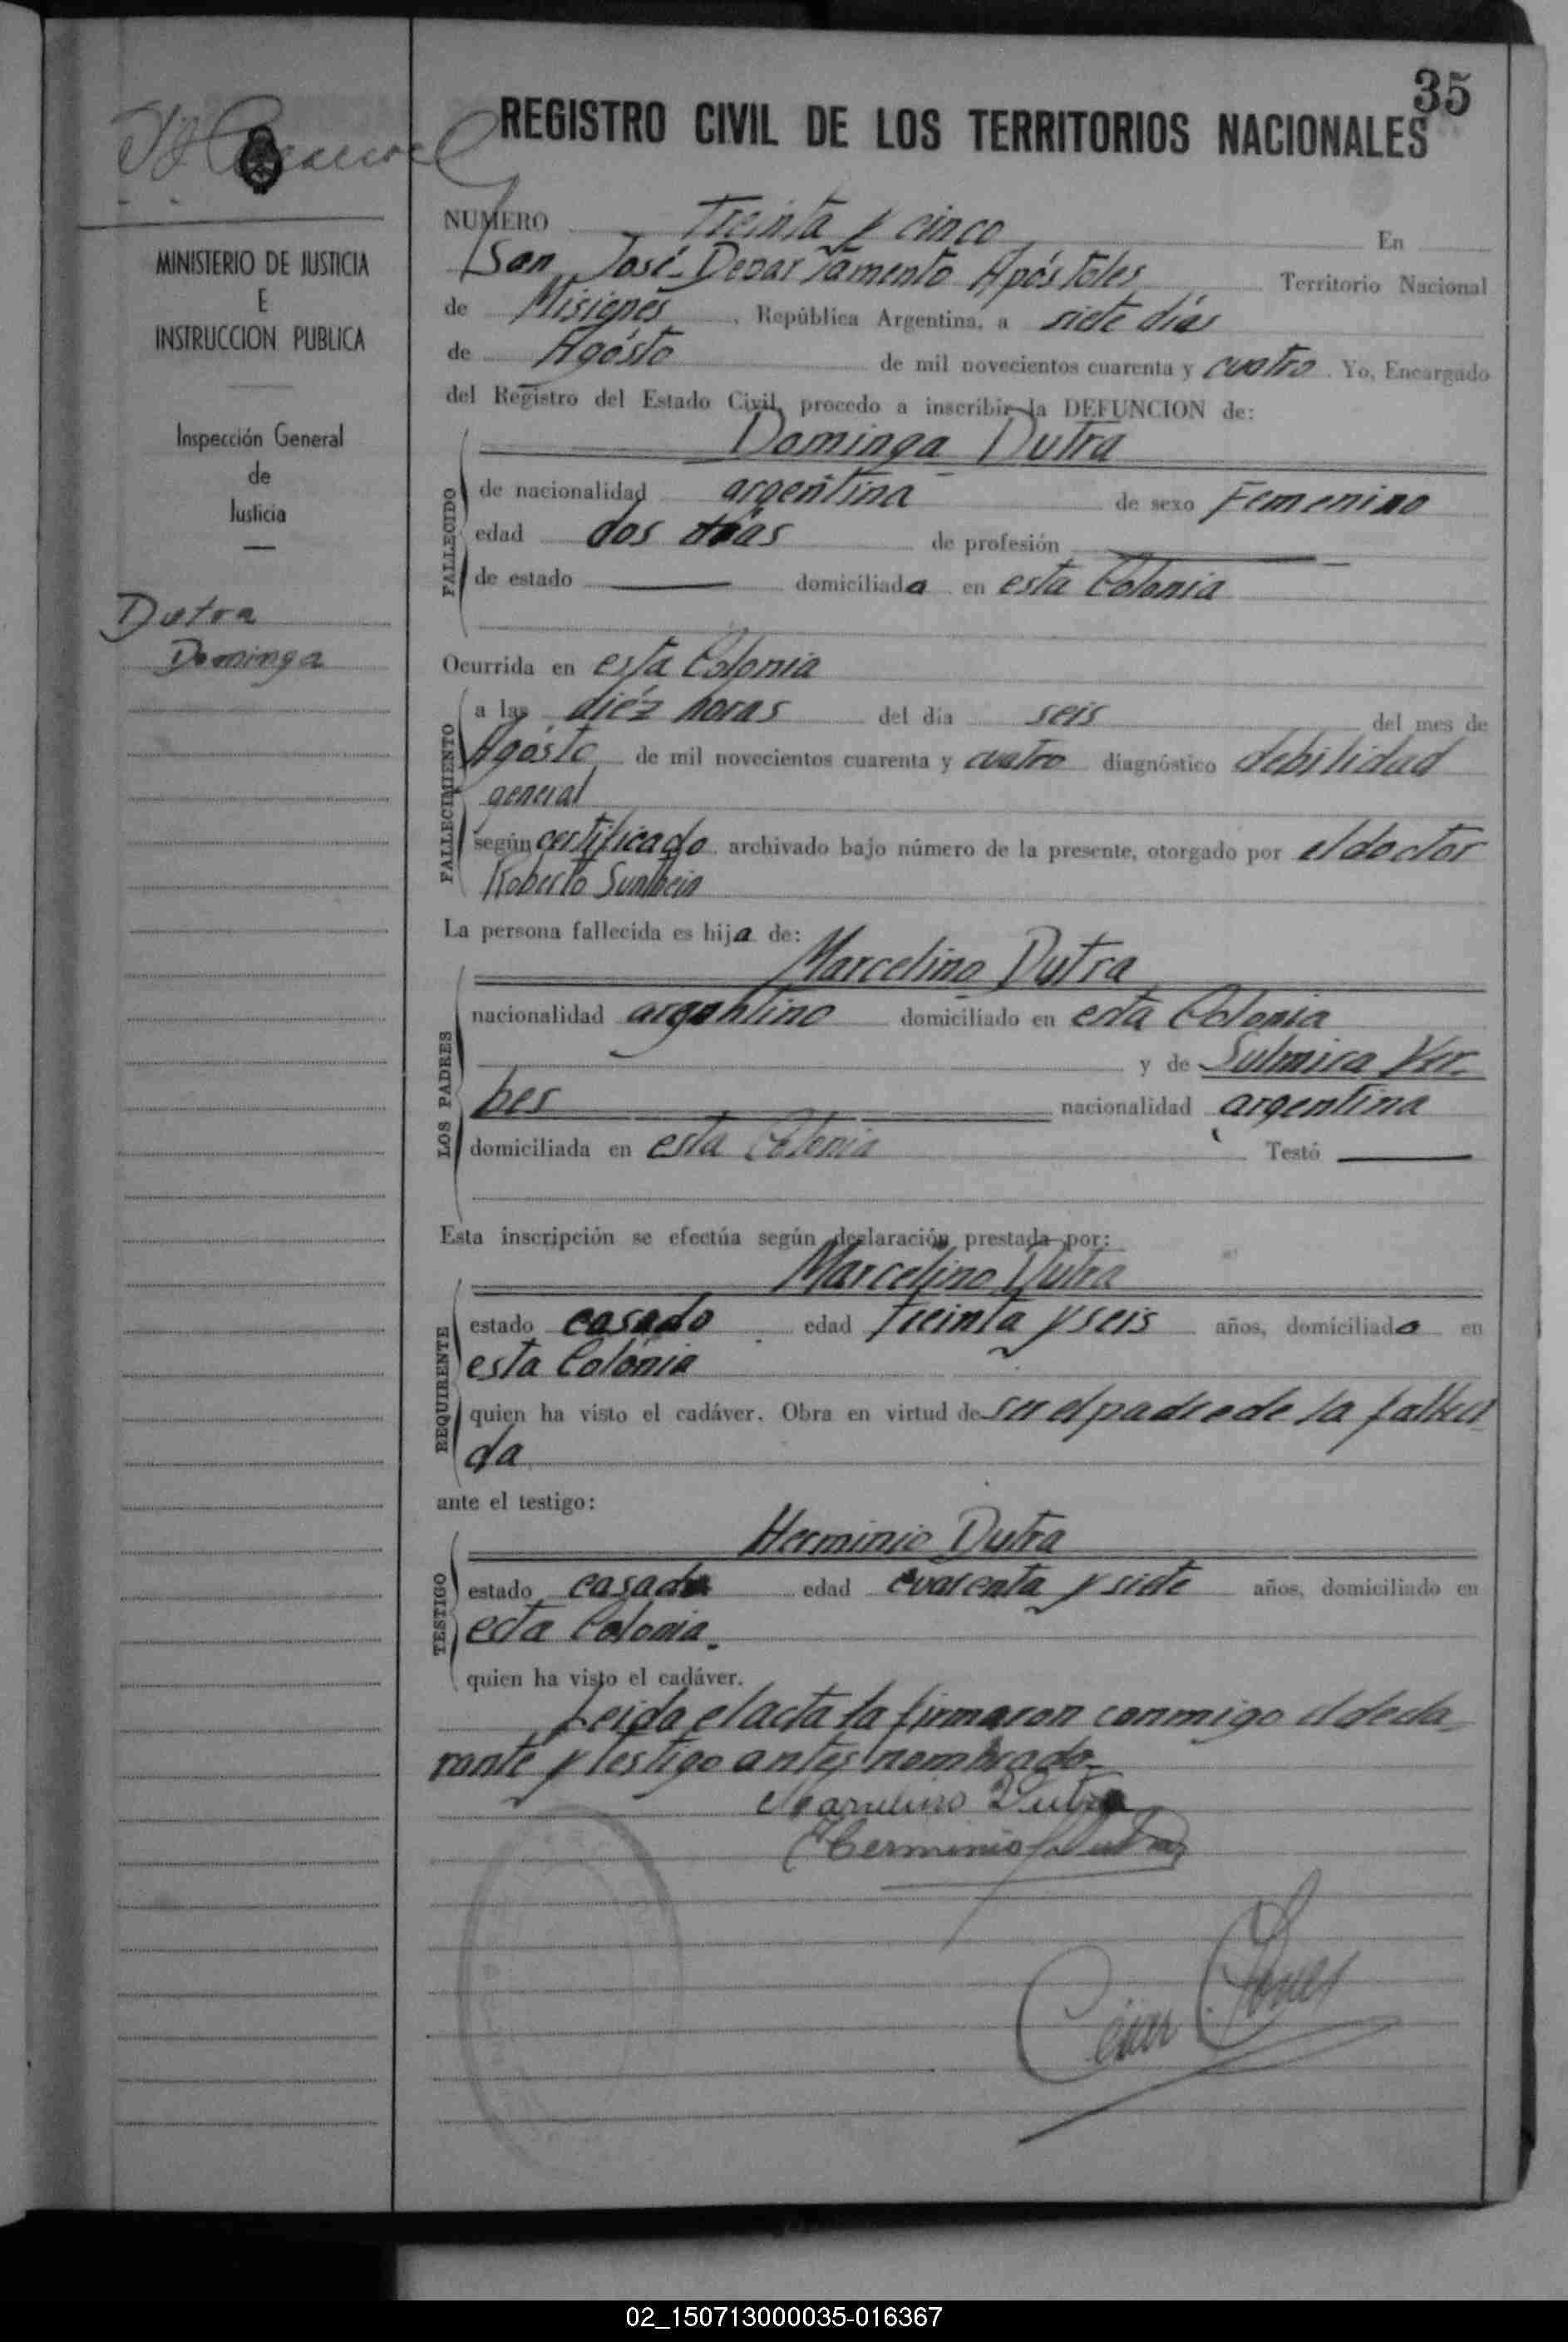 35
REGISTRO CIVIL DE LOS TERRITORIOS NACIONALES
MINISTERIO DE JUSTICIA
E
INSTRUCCION PUBLICA
Inspección General
de
Justicia
Dutra
Dominga
NUMERO Treinta y cinco En
San José Departamento Apóstoles Territorio Nacional
de Misiones, República Argentina, a siete días
de Agósto de mil novecientos cuarenta y cuatro. Yo, Encargado
del Registro del Estado Civil, procedo a inscribir la DEFUNCION de:
Dominga Dutra
FALLECIDO
de nacionalidad argentina de sexo Femenino
edad dos días de profesión
de estado domiciliada en esta Colonia
Ocurrida en esta Colonia
FALLECIMIENTO
a las diéz horas del día seis del mes de
Agósto de mil novecientos cuarenta y cuatro diagnóstico debilidad
general
según certificado archivado bajo número de la presente, otorgado por el doctor
Roberto
La persona fallecida es hija de:
Marcelino Dutra
LOS PADRES
nacionalidad argentino domiciliado en esta Colonia
y de Sulmira Ver-
bes nacionalidad argentina
domiciliada en esta Colonia Testó
Esta inscripción se efectúa según declaración prestada por:
Marcelino Dutra
REQUIRENTE
estado casado edad treinta y seis años, domiciliado en
esta Colonia
quien ha visto el cadáver. Obra en virtud de ser el padre de la falleci-
da
ante el testigo:
Herminio Dutra
TESTIGO
estado casado edad cuarenta y siete años, domiciliado en
esta Colonia.
quien ha visto el cadáver.
Leida el acta la firmaron conmigo el decla-
rante y testigo antes nombrado-
Marcelino Dutra
Herminio Dutra
02_150713000035-016367